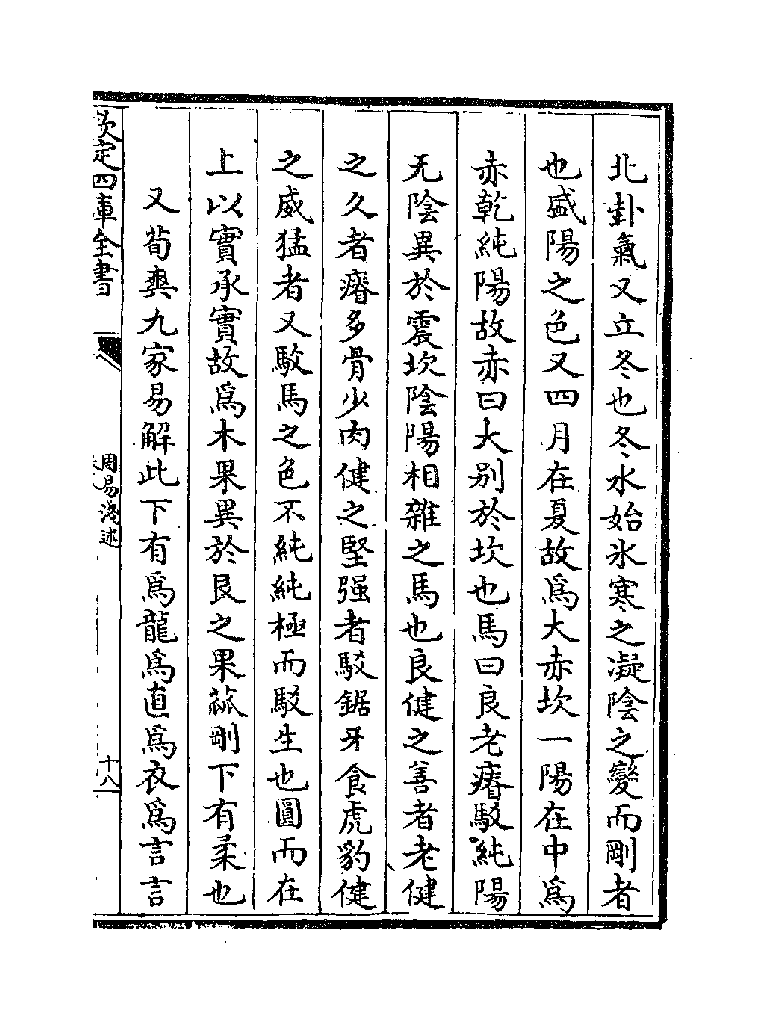 北卦氣又立冬也冬水始氷寒之凝陰之變而剛者
也盛陽之色又四月在夏故爲大赤坎一陽在中爲
赤乾純陽故赤曰大别於坎也馬曰良老瘠駁純陽
无陰異於震坎陰陽相雜之馬也良健之善者老健
之久者瘠多骨少肉健之堅强者駁鋸牙食虎豹健
之威猛者又駁馬之色不純純極而駁生也圓而在
上以實承實故爲木果異於艮之果蓏剛下有柔也
又荀爽九家易解此下有爲龍爲直爲衣爲言言
欽定四庫全書
周易淺述
十八